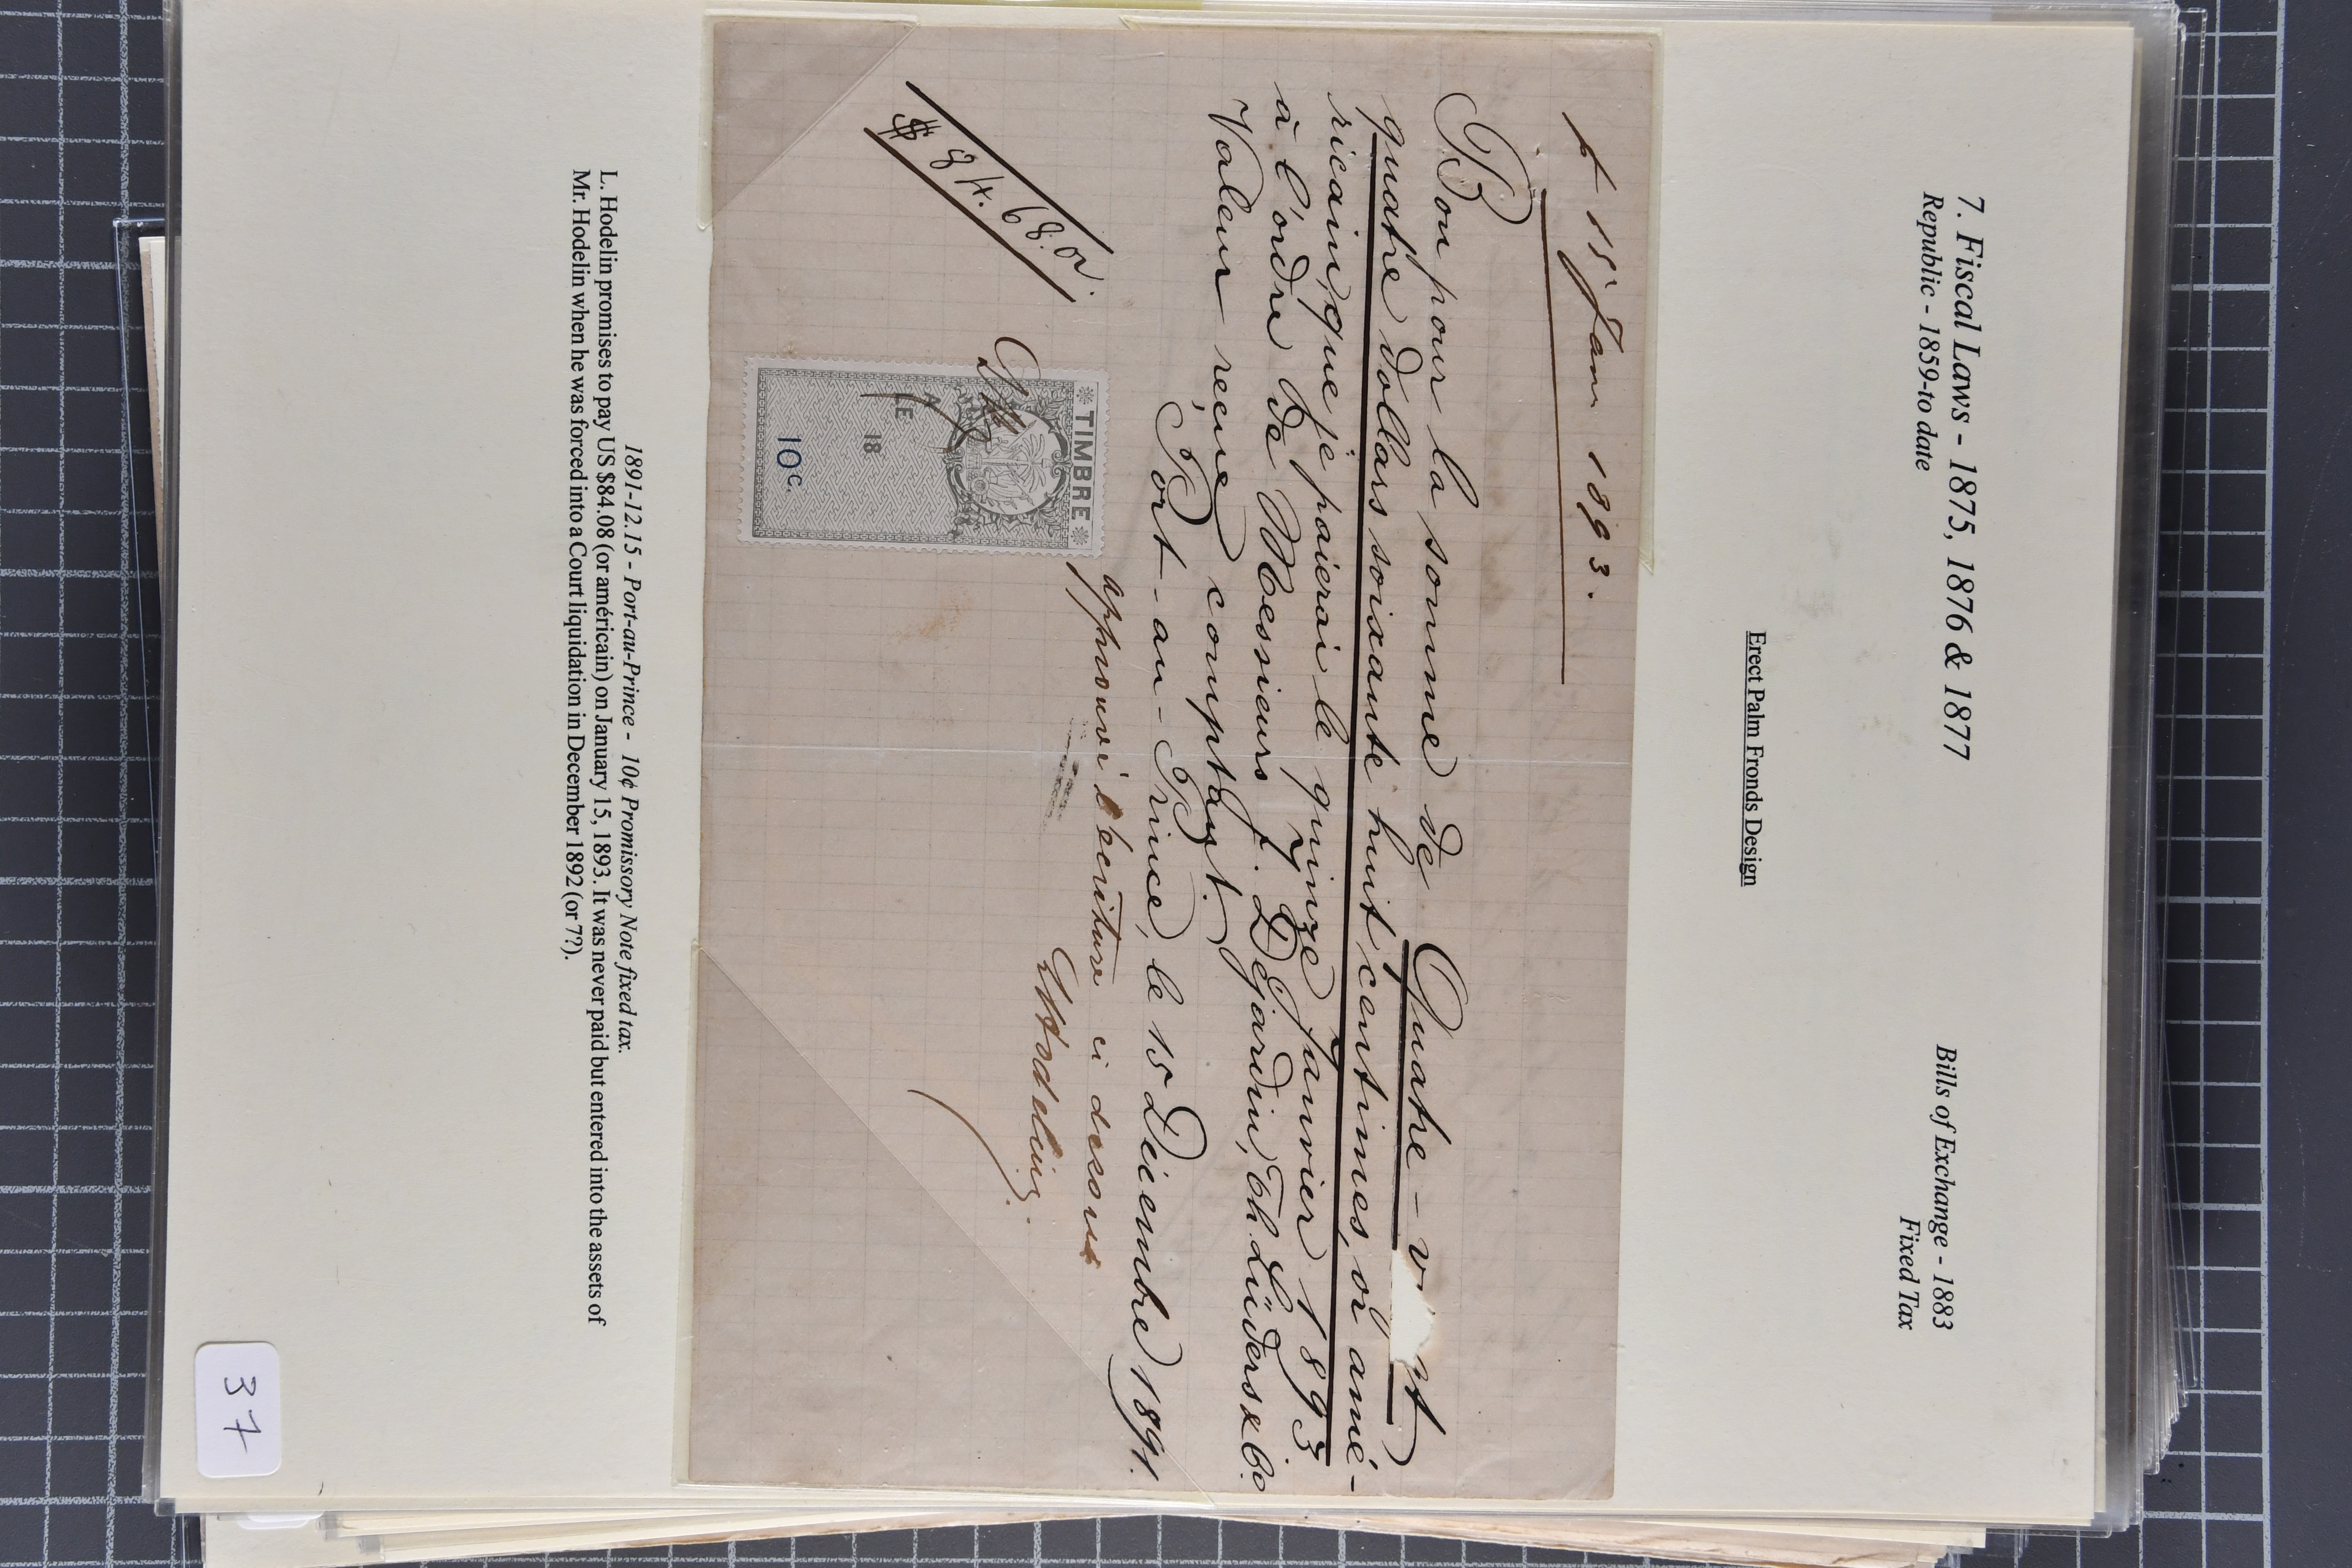 7. Fiscal Laws - 1875, 1876 & 1877
Republic - 1859-to date
Bills of Exchange - 1883
Fixed Tax
Erect Palm Fronds Design
15 Janv 1893.
Bon pour la somme de Quatre-vingt
quatre dollars soixante huit centimes, or amé-
ricain, que je paierai le quinze Janvier 1893
à l'ordre de Messieurs J. Déjardin, Th. Lüders & Co.
Valeur reçue comptant.
Port-au-Prince, le 15 Décembre 1891.
approuvé l'écriture ci dessus
LHodelin
$ 84.68. or.
TIMBRE
A
LE
18
10 c.
1891-12.15 - Port-au-Prince - 10¢ Promissory Note fixed tax.
L. Hodelin promises to pay US $84.08 (or américain) on January 15, 1893. It was never paid but entered into the assets of
Mr. Hodelin when he was forced into a Court liquidation in December 1892 (or 7?).
37